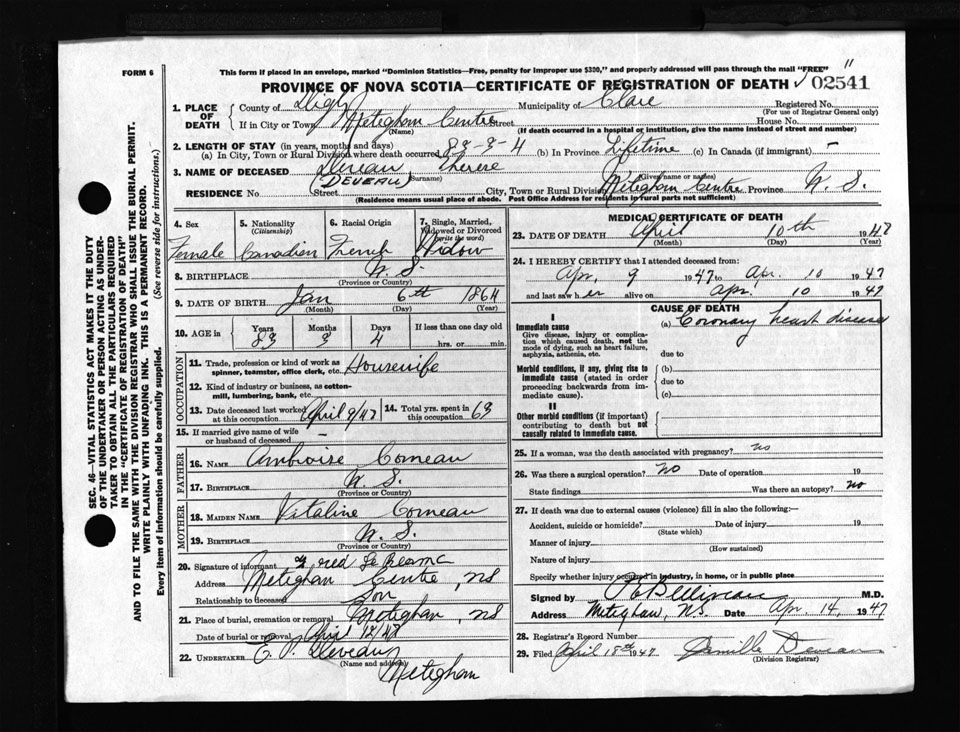 FORM 6
This form if placed in an envelope, marked "Dominion Statistics—Free, penalty for improper use $300," and properly addressed will pass through the mail "FREE"
PROVINCE OF NOVA SCOTIA—CERTIFICATE OF REGISTRATION OF DEATH 02541
1. PLACE OF DEATH County of Digby Municipality of Clare Registered No.
(For use of Registrar General only)
If in City or Town Meteghan Centre Street House No.
(Name) (If death occurred in a hospital or institution, give the name instead of street and number)
2. LENGTH OF STAY (in years, months and days)
(a) In City, Town or Rural Division where death occurred 83-3-4 (b) In Province Lifetime (c) In Canada (if immigrant) -
3. NAME OF DECEASED Therese
(DEVEAU) (Surname) (Given name or names)
RESIDENCE No Street City, Town or Rural Division Meteghan Centre Province N.S.
(Residence means usual place of abode. Post Office Address for residents in rural parts not sufficient)
4. Sex Female
5. Nationality (Citizenship) Canadian
6. Racial Origin French
7. Single, Married, Widowed or Divorced (write the word) Widow
8. BIRTHPLACE N.S.
(Province or Country)
9. DATE OF BIRTH Jan 6th 1864
(Month) (Day) (Year)
10. AGE in Years 83 Months 3 Days 4 If less than one day old hrs. or min.
OCCUPATION
11. Trade, profession or kind of work as spinner, teamster, office clerk, etc. Housewife
12. Kind of industry or business, as cotton-mill, lumbering, bank, etc.
13. Date deceased last worked at this occupation April 9/47 14. Total yrs. spent in this occupation 63
15. If married give name of wife or husband of deceased -
FATHER
16. NAME Ambroise Comeau
17. BIRTHPLACE N.S.
(Province or Country)
MOTHER
18. MAIDEN NAME Vitaline Comeau
19. BIRTHPLACE N.S.
(Province or Country)
20. Signature of informant
Address Meteghan Centre, NS
Relationship to deceased Son
21. Place of burial, cremation or removal Meteghan, NS
Date of burial or removal April 12/47
22. UNDERTAKER E. P. Deveau
(Name and address) Meteghan
MEDICAL CERTIFICATE OF DEATH
23. DATE OF DEATH April 10th 1947
(Month) (Day) (Year)
24. I HEREBY CERTIFY that I attended deceased from:
Apr. 9 1947 to Apr. 10 1947
and last saw her alive on Apr. 10 1947
CAUSE OF DEATH
I
Immediate cause (a) Coronary heart disease
Give disease, injury or complication which caused death, not the mode of dying, such as heart failure, asphyxia, asthenia, etc. due to
Morbid conditions, if any, giving rise to immediate cause (stated in order proceeding backwards from immediate cause). (b)
due to
(c)
II
Other morbid conditions (if important) contributing to death but not causally related to immediate cause.
25. If a woman, was the death associated with pregnancy? no
26. Was there a surgical operation? no Date of operation 19
State findings Was there an autopsy? no
27. If death was due to external causes (violence) fill in also the following:—
Accident, suicide or homicide? Date of injury 19
(State which)
Manner of injury
(How sustained)
Nature of injury
Specify whether injury occurred in industry, in home, or in public place
Signed by P E Belliveau M.D.
Address Meteghan, N.S. Date Apr. 14, 1947
28. Registrar's Record Number
29. Filed April 15th 1947 Camille Deveau
(Division Registrar)
SEC. 46—VITAL STATISTICS ACT MAKES IT THE DUTY
OF THE UNDERTAKER OR PERSON ACTING AS UNDER-
TAKER TO OBTAIN ALL THE PARTICULARS REQUIRED
IN THE "CERTIFICATE OF REGISTRATION OF DEATH"
AND TO FILE THE SAME WITH THE DIVISION REGISTRAR WHO SHALL ISSUE THE BURIAL PERMIT.
WRITE PLAINLY WITH UNFADING INK. THIS IS A PERMANENT RECORD.
Every item of information should be carefully supplied. (See reverse side for instructions.)